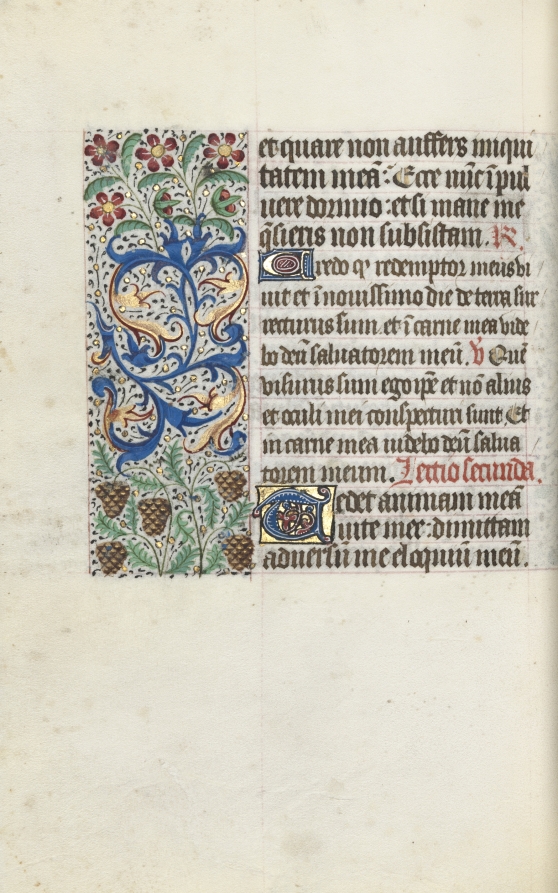 et quare non auffers iniqui
tatem meā: Ecce nūc ī pul
uere dormio: et si mane me
q̄sieris non subsistam. R.
Credo qꝫ redemptor meus vi
uit et ī nouissimo die de terra sur
recturus sum. et ī carne mea vide
bo deū saluatorem meū. V Quē
visurus sum ego ip̄e et nō alius
et oculi mei conspecturi sunt. Et
in carne mea videbo deū salua
torem meum. Lectio secunda.
Tedet animam meā
uite mee: dimittam
aduersū me eloquiū meū.